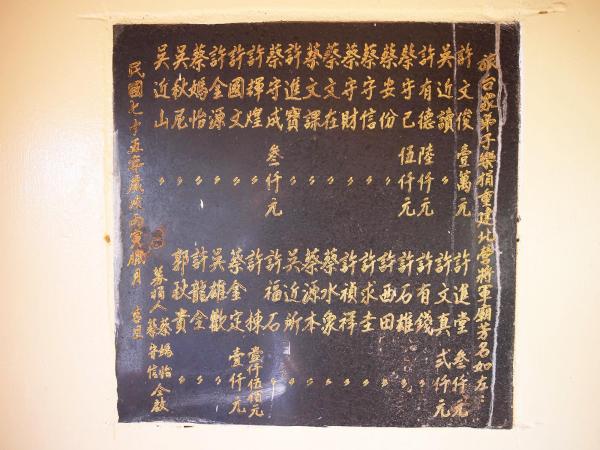 旅台眾弟子樂捐重建北營將軍廟芳名如左：
許文俊 壹萬元
吳近讀 〃
許有德 陸仟元
蔡守己 伍仟元
蔡安份 〃
蔡守信 〃
蔡守財 〃
蔡文在 〃
蔡文課 〃
許進寶 〃
蔡守成 叁仟元
許輝煌 〃
許國文 〃
許金源 〃
蔡媽怡 〃
吳秋尾 〃
吳近山 〃
許進堂 叁仟元
許文真 弍仟元
許有錢 〃
許石雄 〃
許西田 〃
許求圭 〃
許禎祥 〃
蔡水象 〃
蔡源本 〃
吳近所 〃
許福石 〃
許棟 壹仟伍佰元
蔡金定 壹仟元
吳雄歡 〃
許龍全 〃
郭秋貴 〃
募捐人 蔡媽怡 蔡守信 仝啟
民國七十五年歲次丙寅臘月 吉旦